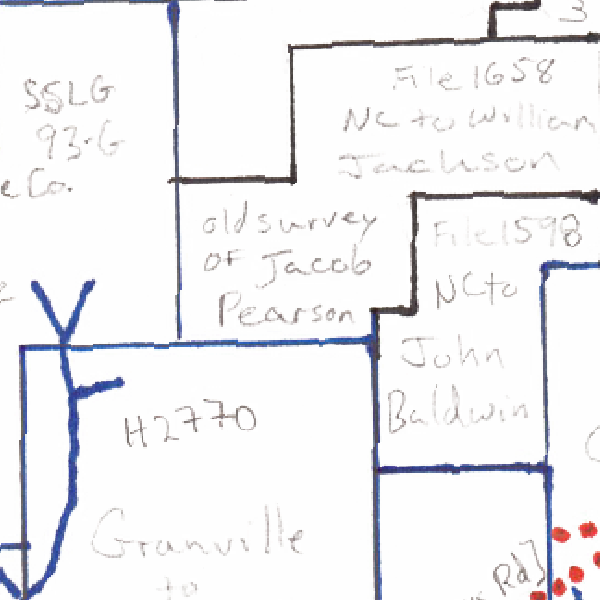 3
File 1658
NC to William
Jackson
SSLG
93-G
e Co.
old survey
of Jacob
Pearson
File 1598
NC to
John
Baldwin
H2770
Granville
to
Rd]